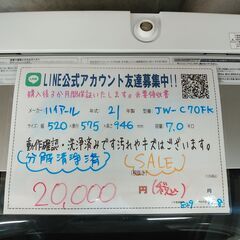 LINE公式アカウント友達募集中!!
購入後3か月間保証いたします。※要領収書
メーカー ハイアール 年式 21 型式 JW-C70FK
サイズ 幅 520 奥 575 高 946 mm 容量 7.0 kg
動作確認・洗浄済みです汚れやキズはございます。
(分解清掃済) (SALE)
20,000 円(税込)